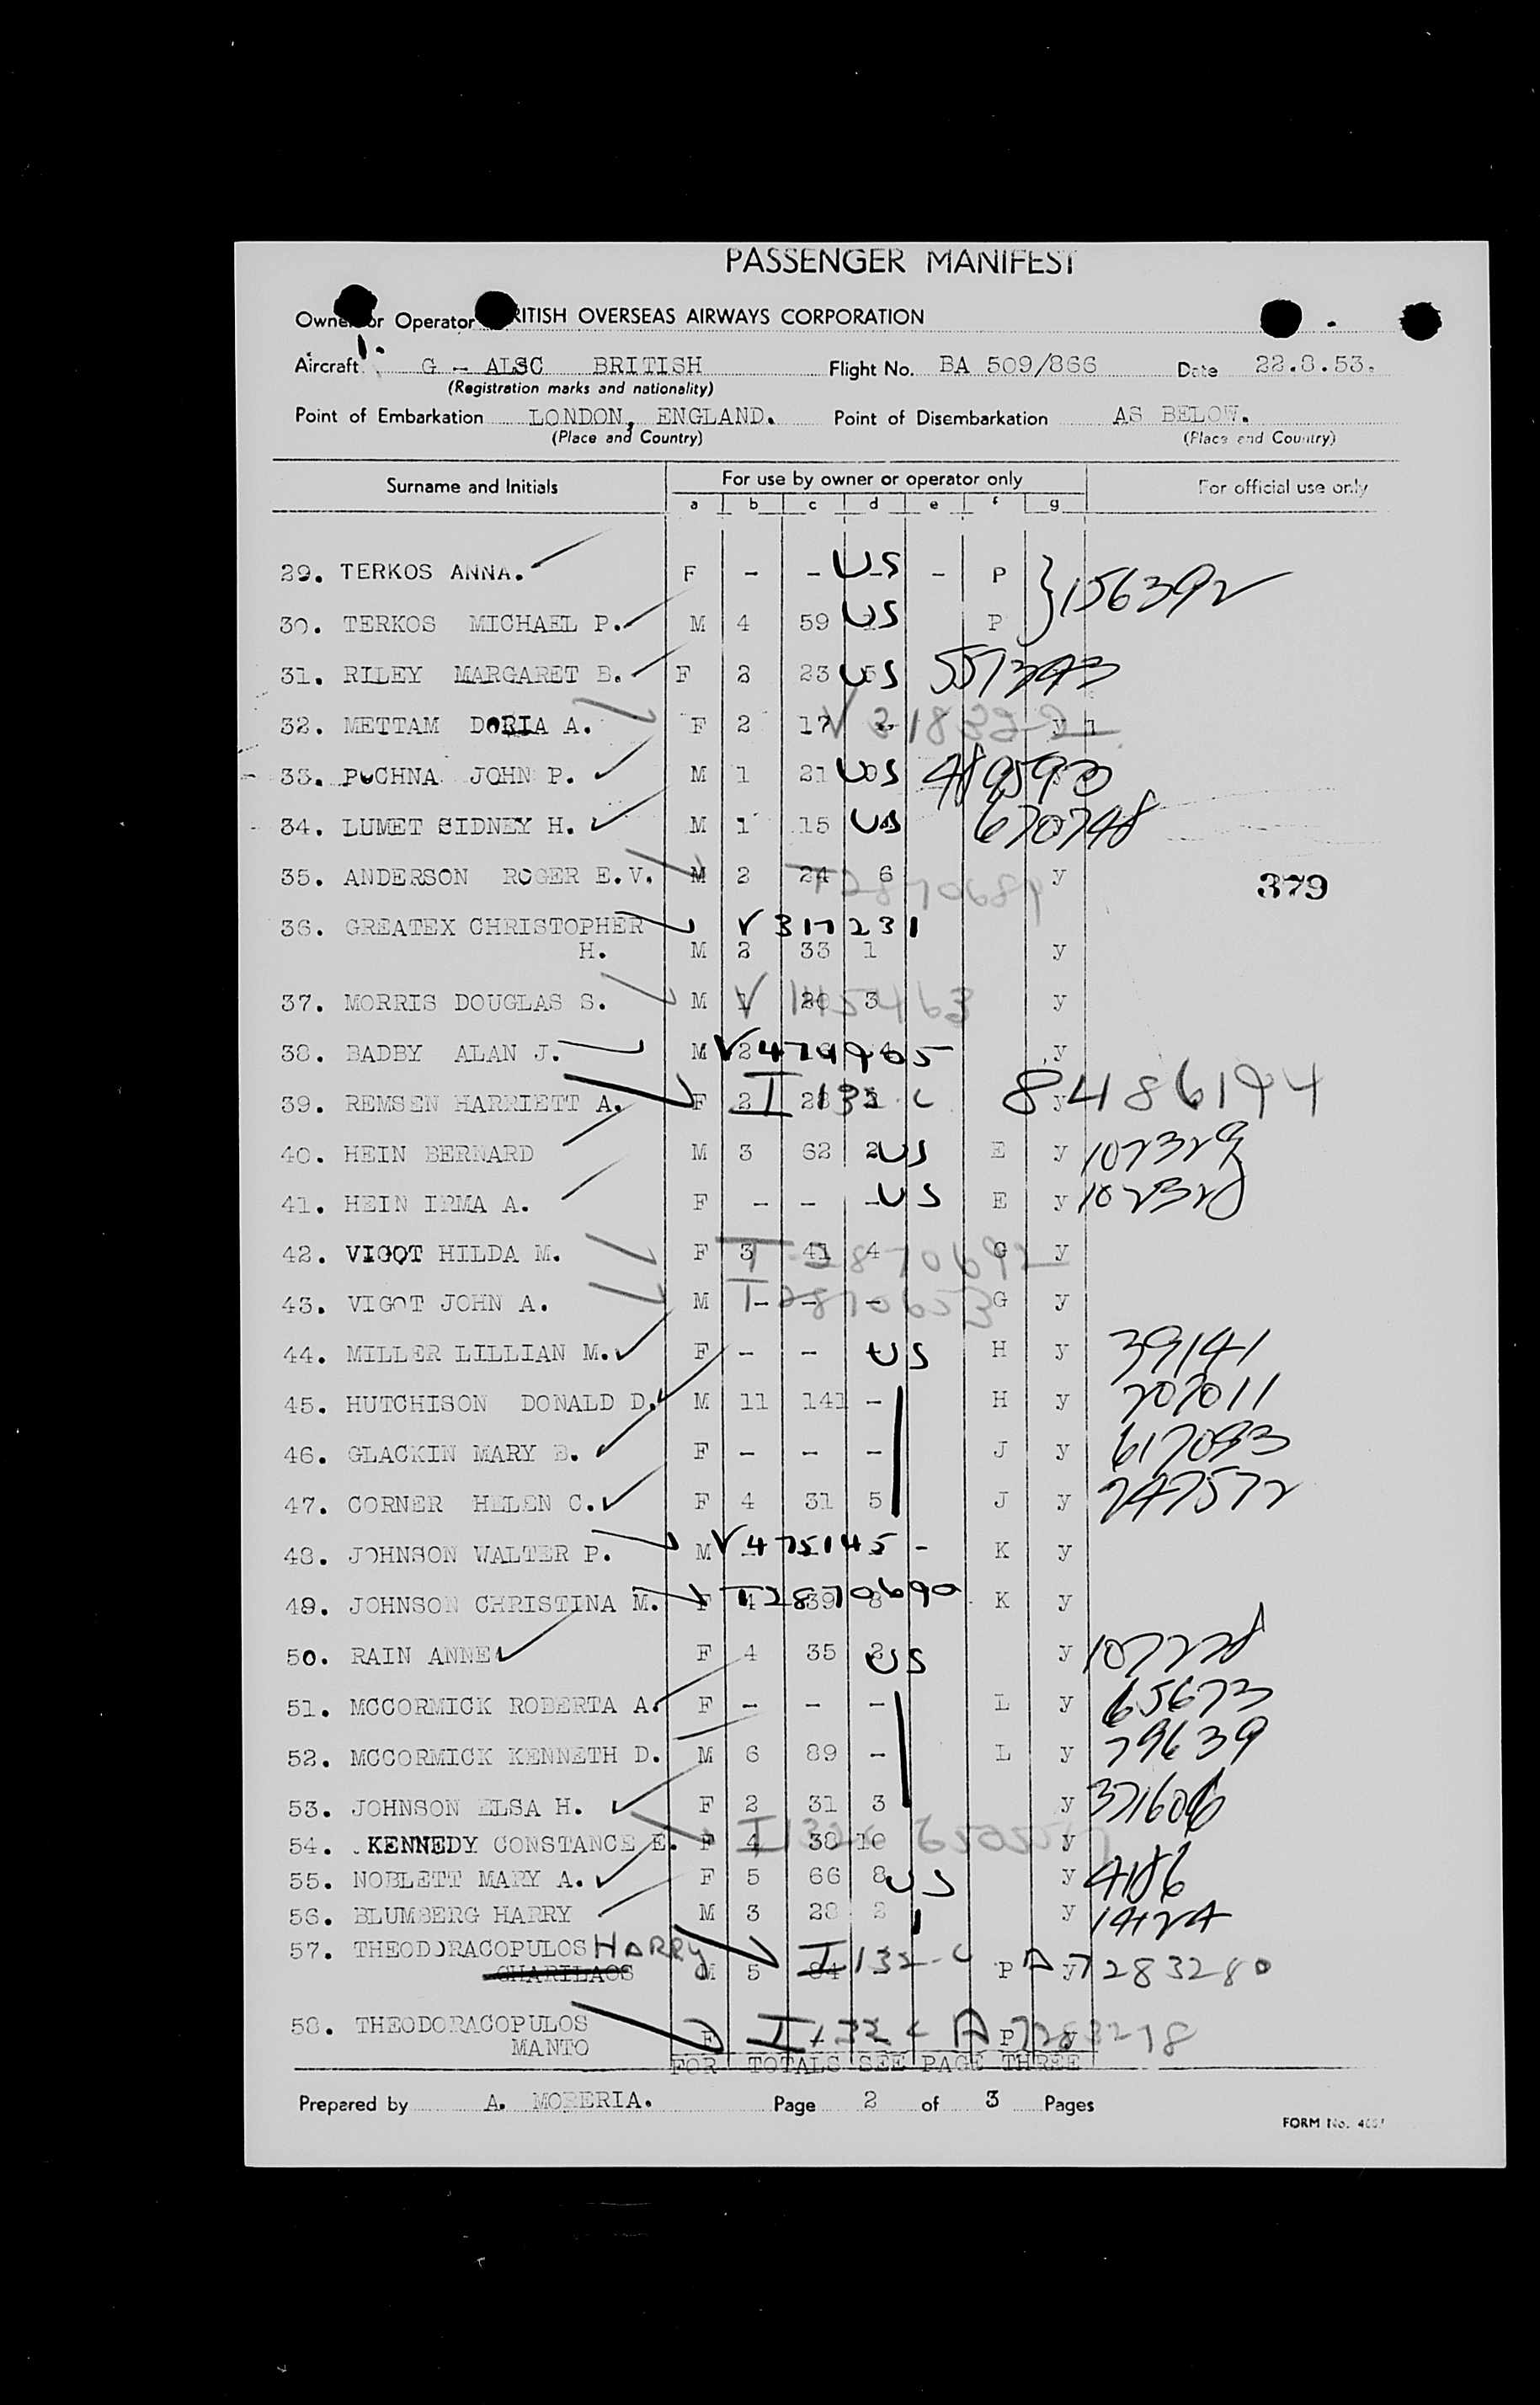 PASSENGER MANIFEST
Owner or Operator BRITISH OVERSEAS AIRWAYS CORPORATION
Aircraft G - ALSC BRITISH Flight No. BA 509/866 Date 22.8.53.
(Registration marks and nationality)
Point of Embarkation LONDON, ENGLAND. Point of Disembarkation AS BELOW.
(Place and Country) (Place and Country)
Surname and Initials For use by owner or operator only For official use only
a b c d e f g
29. TERKOS ANNA. F - - US - P } 156392
30. TERKOS MICHAEL P. M 4 59 US P
31. RILEY MARGARET B. F 2 23 5 US
32. METTAM DORIA A. F 2 17 V 318322 y 1
33. PUCHNA JOHN P. M 1 21 US
34. LUMET SIDNEY H. M 1 15 US 670748
35. ANDERSON ROGER E.V. M 2 24 6 I2870689 y
379
36. GREATEX CHRISTOPHER V 317231
H. M 2 33 1 y
37. MORRIS DOUGLAS S. M 1 20 3 V 145463 y
38. BADBY ALAN J. M 2 V474905 y
39. REMSEN HARRIETT A. F 2 28 I 132 C y 8486194
40. HEIN BERNARD M 3 62 2 US E y 107329
41. HEIN IRMA A. F - - - US E y 102328
42. VIGOT HILDA M. F 3 41 4 I 2870692 G y
43. VIGOT JOHN A. M - - - I 2870653 G y
44. MILLER LILLIAN M. F - - US H y 39141
45. HUTCHISON DONALD D. M 11 141 - H y 207011
46. GLACKIN MARY B. F - - - J y 617093
47. CORNER HELEN C. F 4 31 5 J y 247572
48. JOHNSON WALTER P. M V 475145 - K y
49. JOHNSON CHRISTINA M. F 4 39 8 I2870690 K y
50. RAIN ANNE F 4 35 2 US y 107228
51. MCCORMICK ROBERTA A. F - - - L y 65673
52. MCCORMICK KENNETH D. M 6 89 - L y 79639
53. JOHNSON ELSA H. F 2 31 3 y 371606
54. KENNEDY CONSTANCE E. F 4 38 10 I132C y
55. NOBLETT MARY A. F 5 66 8 US y 4186
56. BLUMBERG HARRY M 3 28 2 y 14124
57. THEODORACOPULOS HARRY
CHARILAOS M 5 84 I 132-C P y A7283280
58. THEODORACOPULOS
MANTO F I 132 C P y A7283218
FOR TOTALS SEE PAGE THREE
Prepared by A. MORERIA. Page 2 of 3 Pages
FORM No.